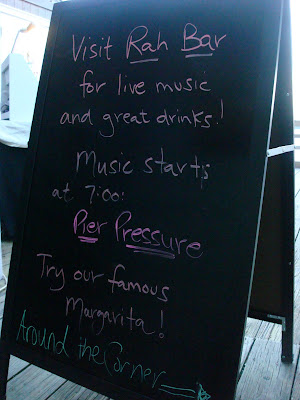 Visit Rah Bar
for live music
and great drinks!
Music starts
at 7:00:
Pier Pressure
Try our famous
Margarita!
Around the Corner